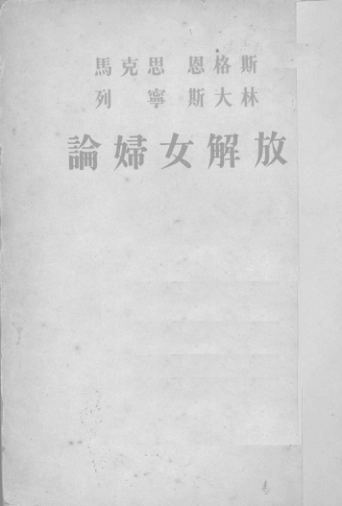 馬克思 恩格斯
列寧 斯大林
論婦女解放